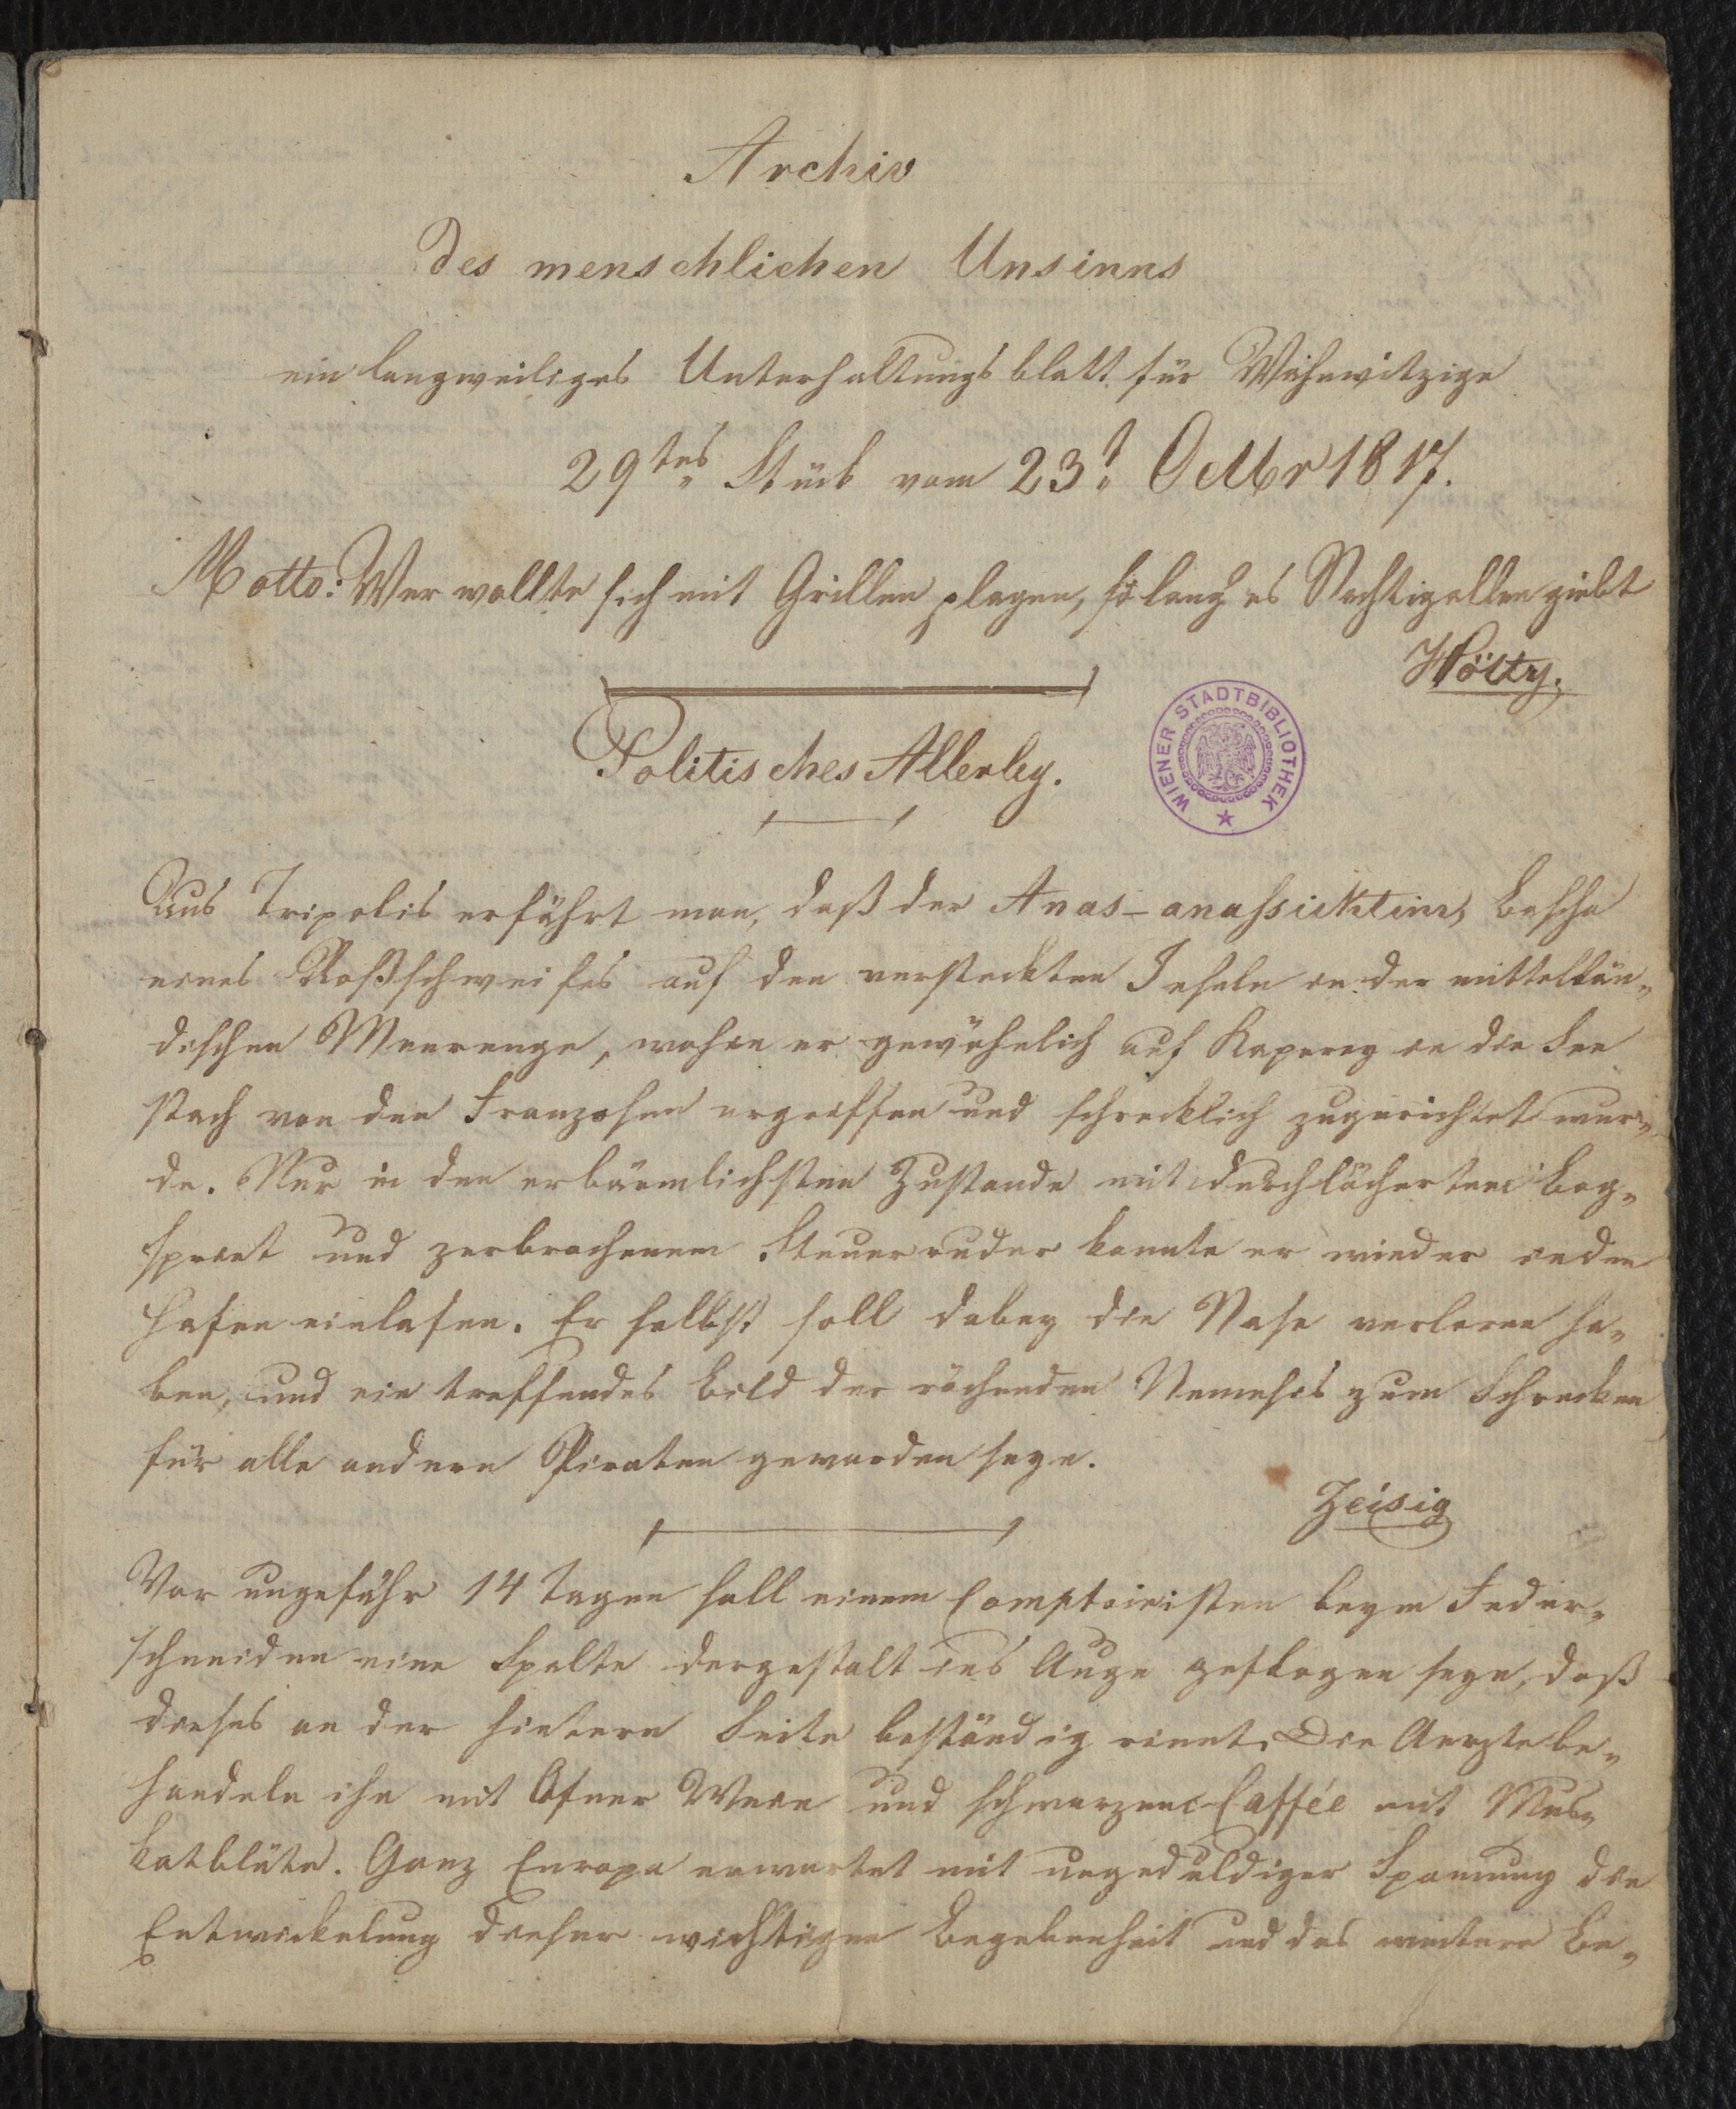 Archiv
des menschlichen Unsinns
ein langweiliges Unterhaltungsblatt für Wahnwitzige
29tes Stück vom 23t Octbr 1817.
Motto: Wer wollte sich mit Grillen plagen, so lang es Nachtigallen giebt
Hölty.
WIENER STADTBIBLIOTHEK
Politisches Allerley.
Aus Tripolis erfährt man, daß der Anas- Bascha
eines Roßschweifes auf den versteckten Inseln in der mittellän-
dischen Meerenge, wohin er gewöhnlich auf Kaperey in die See
stach von den Franzosen ergriffen und schrecklich zugerichtet wur-
de. Nur in den erbärmlichsten Zustande mit durchlöcherten Bog-
spriet und zerbrochenem Steuerruder konnte er wieder in den
Hafen einlafen. Er selbst soll dabey die Nase verloren ha-
ben, und ein treffendes Bild der rächenden Nemesis zum Schrecken
für alle andern Piraten geworden seyn.
Zeisig
Vor ungefähr 14 Tagen soll einem Comptoiristen beym Feder-
schneiden eine Spalte dergestalt ins Auge geflogen seyn, daß
dieses an der hintern Seite beständig rinnt. Die Aerzte be-
handeln ihn mit Ofner Wein und schwarzen Caffée mit Mus-
katblüte. Ganz Europa erwartet mit ungeduldiger Spannung die
Entwickelung dieser wichtigen Begebenheit und das weitere Be-